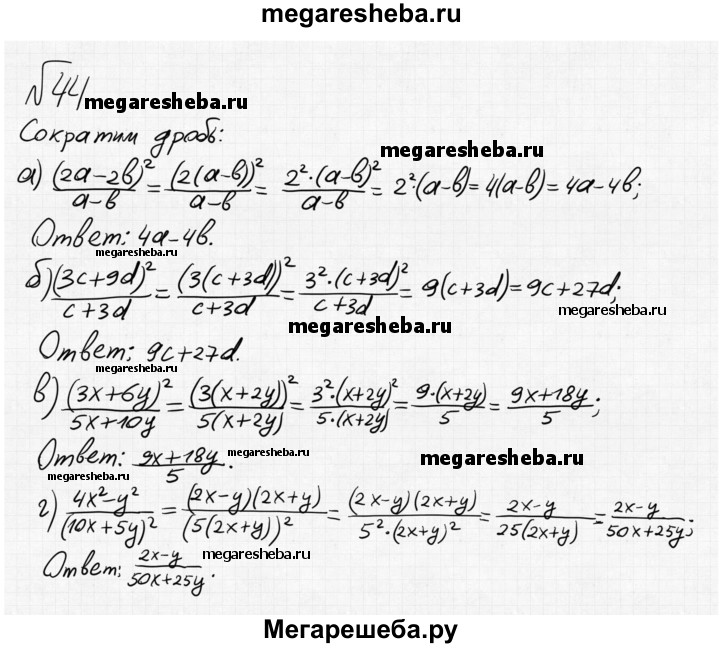 megaresheba.ru
№44 megaresheba.ru
Сократим дробь:
megaresheba.ru
а) (2a-2b)²/(a-b) = (2(a-b))²/(a-b) = 2²·(a-b)²/(a-b) = 2²·(a-b) = 4(a-b) = 4a-4b;
Ответ: 4a-4b.
megaresheba.ru
б) (3c+9d)²/(c+3d) = (3(c+3d))²/(c+3d) = 3²·(c+3d)²/(c+3d) = 9(c+3d) = 9c+27d;
megaresheba.ru
megaresheba.ru
Ответ: 9c+27d.
megaresheba.ru
в) (3x+6y)²/(5x+10y) = (3(x+2y))²/(5(x+2y)) = 3²·(x+2y)²/(5·(x+2y)) = 9·(x+2y)/5 = (9x+18y)/5;
Ответ: (9x+18y)/5.
megaresheba.ru
megaresheba.ru
г) (4x²-y²)/(10x+5y)² = (2x-y)(2x+y)/(5(2x+y))² = (2x-y)(2x+y)/(5²·(2x+y)²) = (2x-y)/(25(2x+y)) = (2x-y)/(50x+25y);
Ответ: (2x-y)/(50x+25y).
megaresheba.ru
Мегарешеба.ру